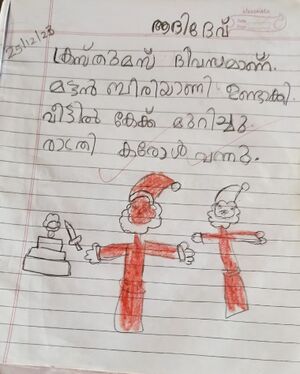 ആദിദേവ്
25/12/23
ക്രസ്തുമസ് ദിവസമാണ്.
മട്ടൻ ബിരിയാണി ഉണ്ടാക്കി
വീട്ടിൽ കേക്ക് മുറിച്ചു.
രാത്രി കരോൾ വന്നു.